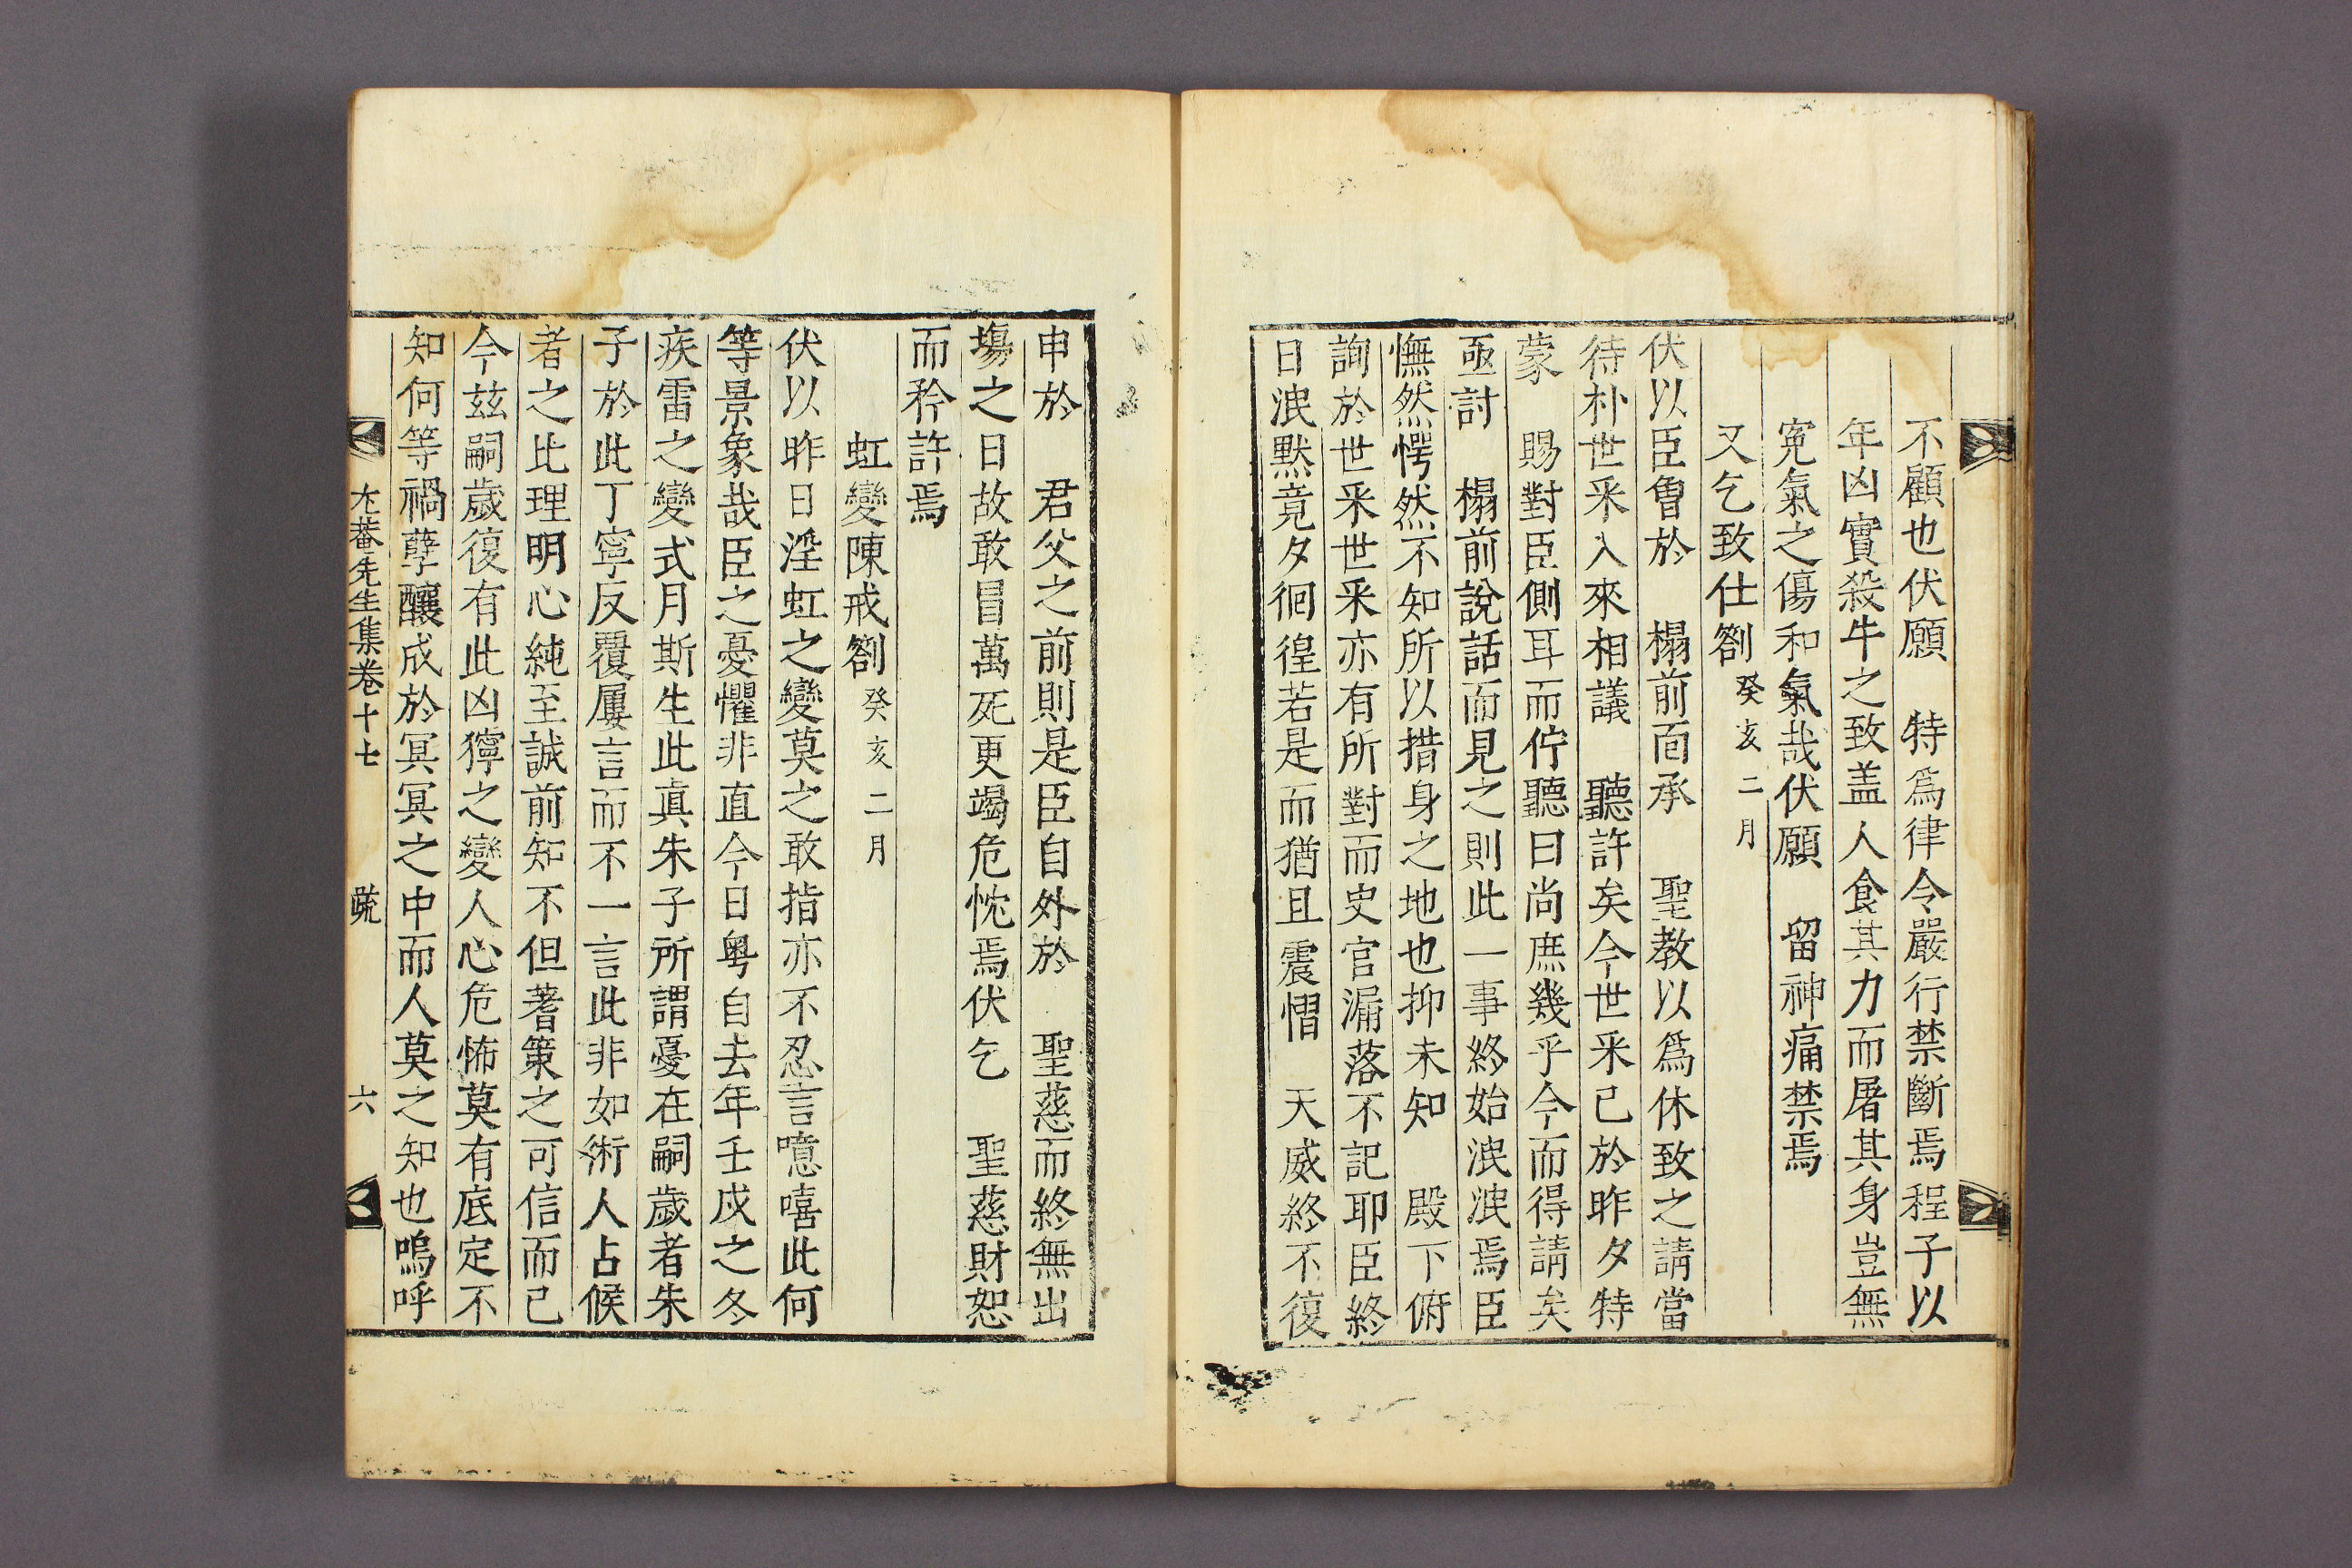 不顧也伏願　特爲律令嚴行禁斷焉程子以
年凶實殺牛之致盖人食其力而屠其身豈無
寃氣之傷和氣哉伏願　留神痛禁焉
又乞致仕劄癸亥二月
伏以臣曾於　榻前面承　聖教以爲休致之請當
待朴世采入來相議　聽許矣今世采已於昨夕特
蒙　賜對臣側耳而佇聽曰尚庶幾乎今而得請矣
亟討　榻前說話而見之則此一事終始泯泯焉臣
憮然愕然不知所以措身之地也抑未知　殿下俯
詢於世采世采亦有所對而史官漏落不記耶臣終
日泯默竟夕徊徨若是而猶且震慴　天威終不復
申於　君父之前則是臣自外於　聖慈而終無出
塲之日故敢冒萬死更竭危忱焉伏乞　聖慈財恕
而矜許焉
虹變陳戒劄癸亥二月
伏以昨日淫虹之變莫之敢指亦不忍言噫嘻此何
等景象哉臣之憂懼非直今日粤自去年壬戌之冬
疾雷之變式月斯生此真朱子所謂憂在嗣歲者朱
子於此丁寧反覆屢言而不一言此非如術人占候
者之比理明心純至誠前知不但蓍策之可信而已
今玆嗣歲復有此凶獰之變人心危怖莫有底定不
知何等禍孽釀成於冥冥之中而人莫之知也嗚呼
尤菴先生集卷十七　疏　六